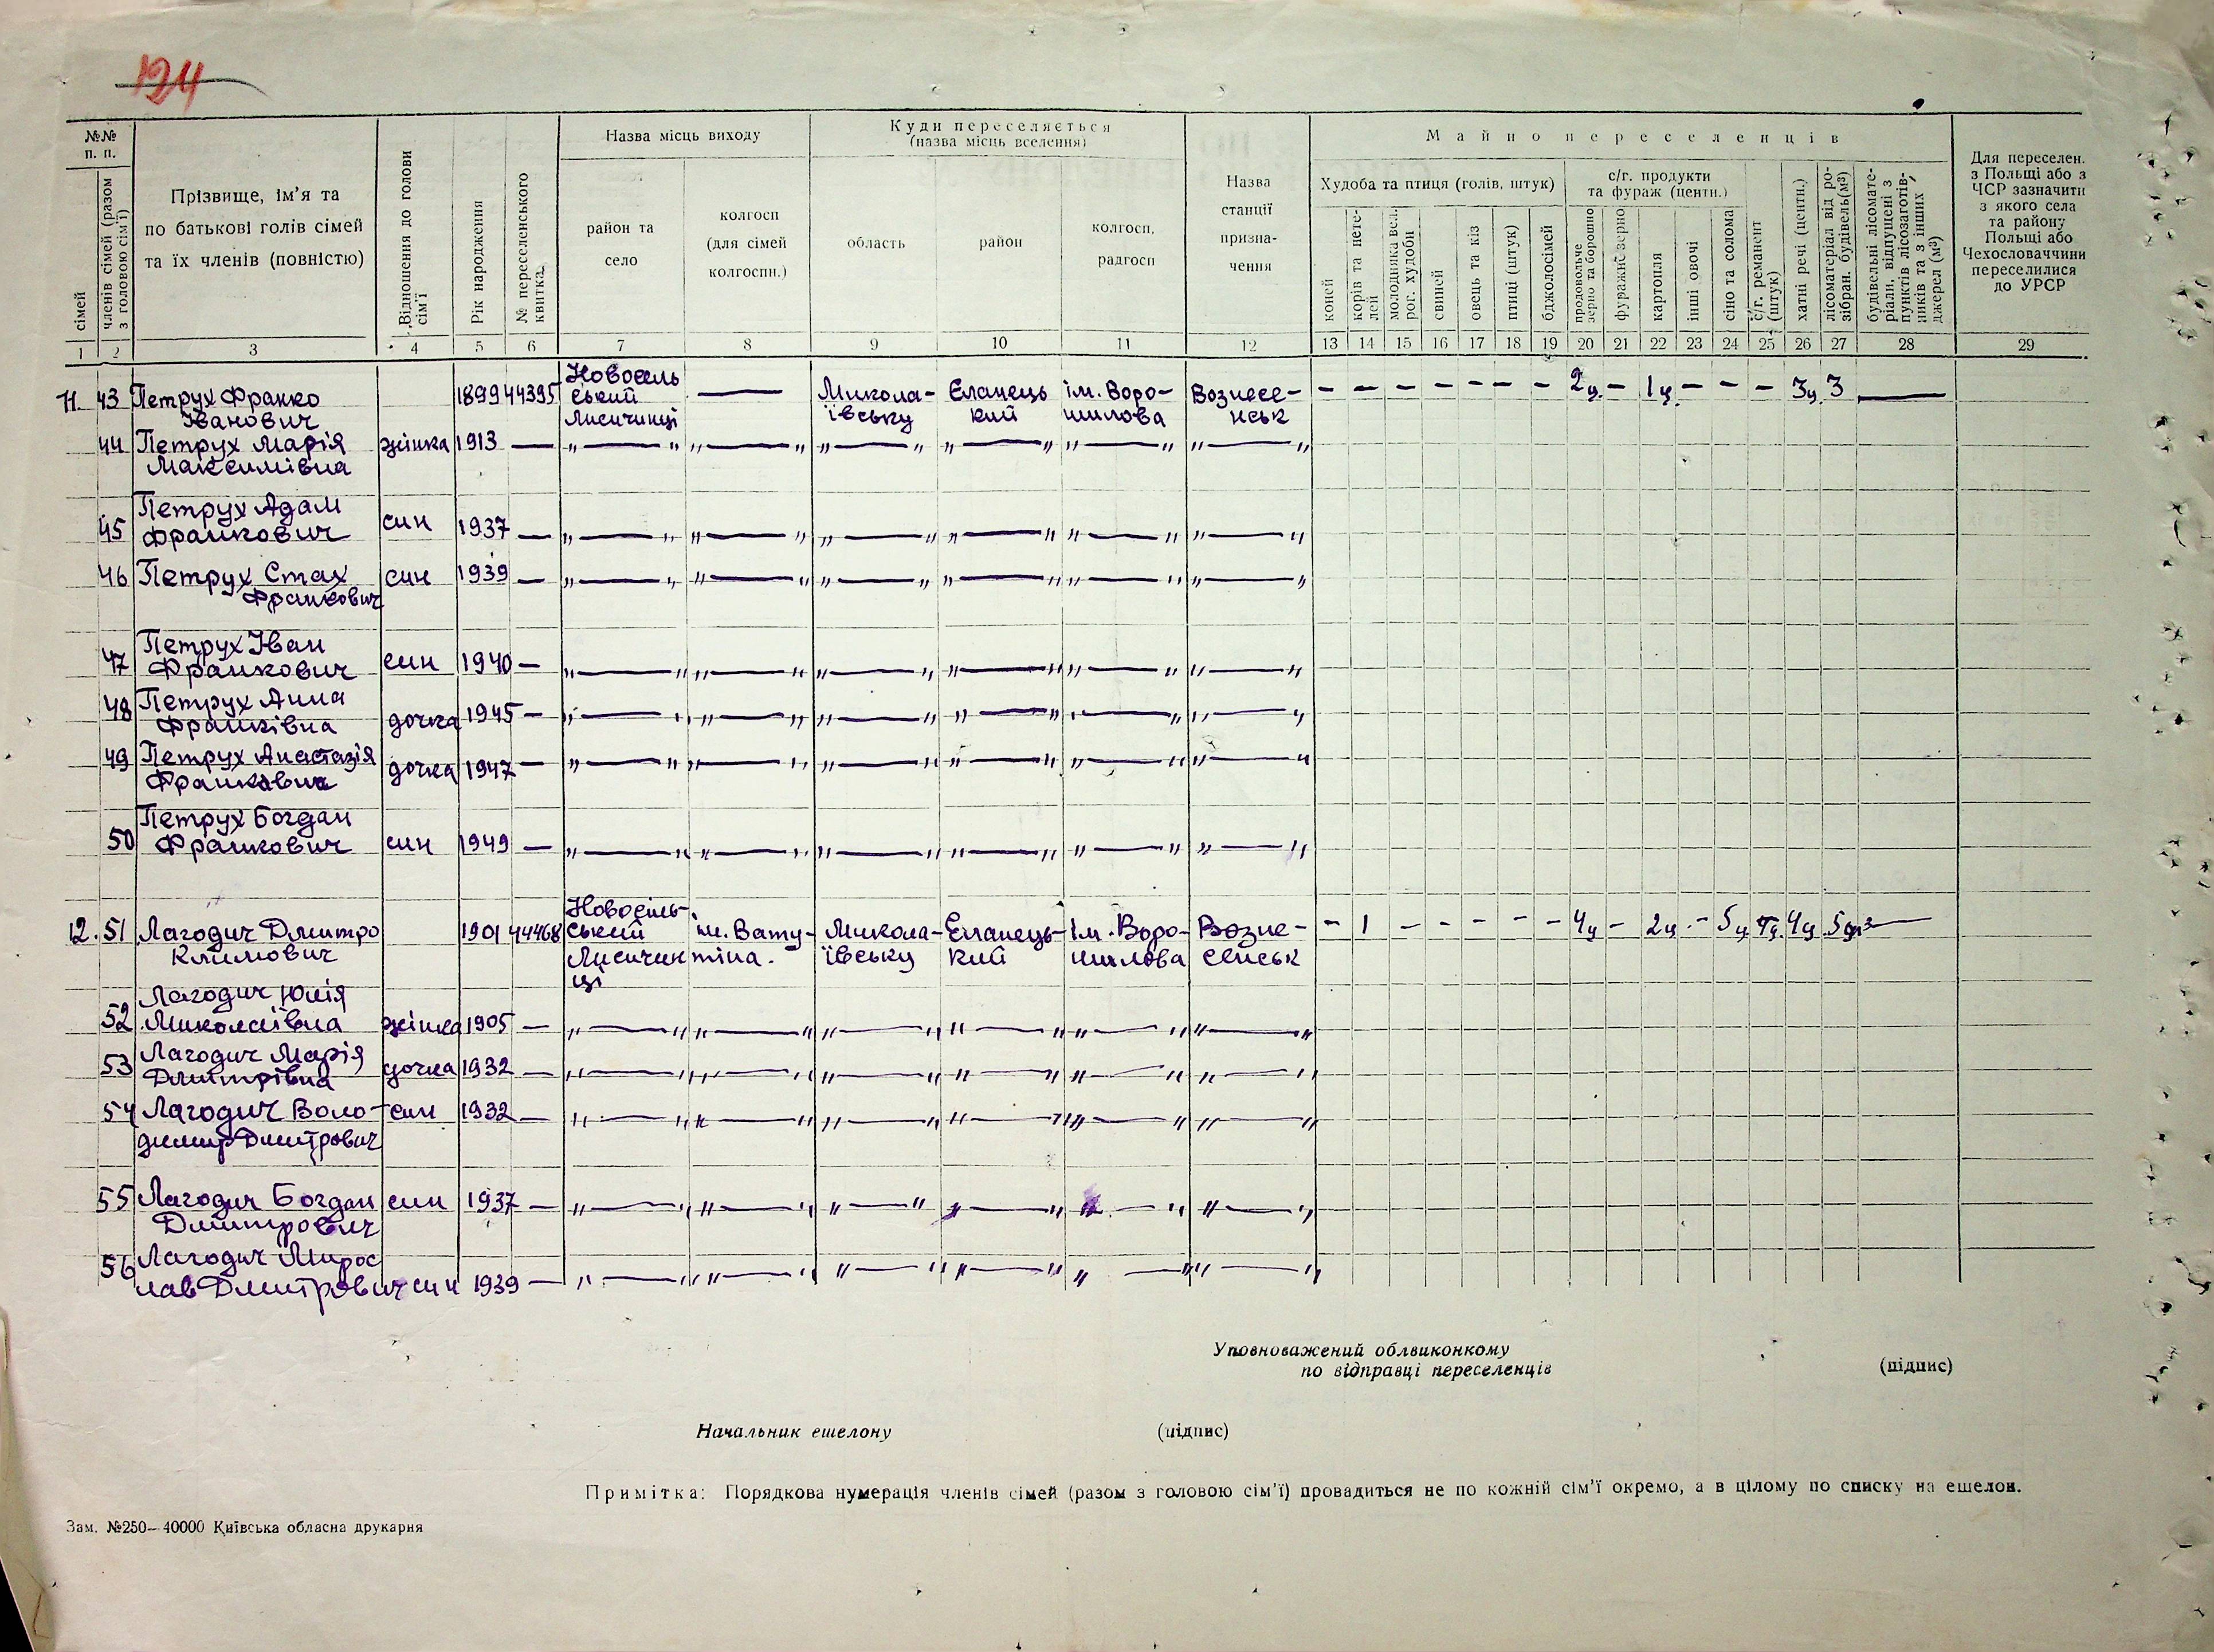 124
№№ п. п.
сімей
членів сімей (разом з головою сім'ї)
Прізвище, ім'я та
по батькові голів сімей
та їх членів (повністю)
Відношення до голови сім'ї
Рік народження
№ переселенського квитка
Назва місць виходу
район та
село
колгосп
(для сімей
колгоспн.)
Куди переселяється
(назва місць вселення)
область
район
колгосп,
радгосп
Назва
станції
призна-
чення
Майно переселенців
Худоба та птиця (голів, штук)
коней
корів та нете-
лей
молодняка вел.
рог. худоби
свиней
овець та кіз
птиці (штук)
бджолосімей
с/г. продукти
та фураж (центн.)
продовольче
зерно та борошно
фуражне зерно
картопля
інші овочі
сіно та солома
с/г. реманент
(штук)
хатні речі (центн.)
лісоматеріал від ро-
зібран. будівель(м³)
будівельні лісомате-
ріали, відпущені з
пунктів лісозаготів-
ників та з інших
джерел (м³)
Для переселен.
з Польщі або з
ЧСР зазначити
з якого села
та району
Польщі або
Чехословаччини
переселилися
до УРСР
1 2 3 4 5 6 7 8 9 10 11 12 13 14 15 16 17 18 19 20 21 22 23 24 25 26 27 28 29
11. 43 Петрух Франко Іванович 1899 44395 Новосельський Лисичинці — Микола-ївську Єланець кий ім. Воро-шилова Вознесе-нськ - - - - - - - 2ц. - 1ц. - - - 3ц. 3 —
44 Петрух Марія Максимівна жінка 1913 — „—„ „—„ „—„ „—„ „—„ „—„
45 Петрух Адам Франкович син 1937 — „—„ „—„ „—„ „—„ „—„ „—„
46 Петрух Стах Франкович син 1939 — „—„ „—„ „—„ „—„ „—„ „—„
47 Петрух Іван Франкович син 1940 — „—„ „—„ „—„ „—„ „—„ „—„
48 Петрух Анна Франківна дочка 1945 — „—„ „—„ „—„ „—„ „—„ „—„
49 Петрух Анастазія Франківна дочка 1947 — „—„ „—„ „—„ „—„ „—„ „—„
50 Петрух Богдан Франкович син 1949 — „—„ „—„ „—„ „—„ „—„ „—„
12. 51 Лагодич Дмитро Климович 1901 44468 Новосіль-ський Лисичин ці ім. Вату-тіна. Микола-ївську Єланець-кий ім. Воро-шилова Возне-сенськ - 1 - - - - - 4ц - 2ц. - 5ц 4ц —
52 Лагодич Юлія Миколаївна жінка 1905 — „—„ „—„ „—„ „—„ „—„ „—„
53 Лагодич Марія Дмитрівна дочка 1932 — „—„ „—„ „—„ „—„ „—„ „—„
54 Лагодич Воло-димир Дмитрович син 1932 — „—„ „—„ „—„ „—„ „—„ „—„
55 Лагодич Богдан Дмитрович син 1937 — „—„ „—„ „—„ „—„ „—„ „—„
56 Лагодич Мирос лав Дмитрович син 1939 — „—„ „—„ „—„ „—„ „—„ „—„
Уповноважений облвиконкому
по відправці переселенців
(підпис)
Начальник ешелону (підпис)
Примітка: Порядкова нумерація членів сімей (разом з головою сім'ї) провадиться не по кожній сім'ї окремо, а в цілому по списку на ешелон.
Зам. №250—40000 Київська обласна друкарня